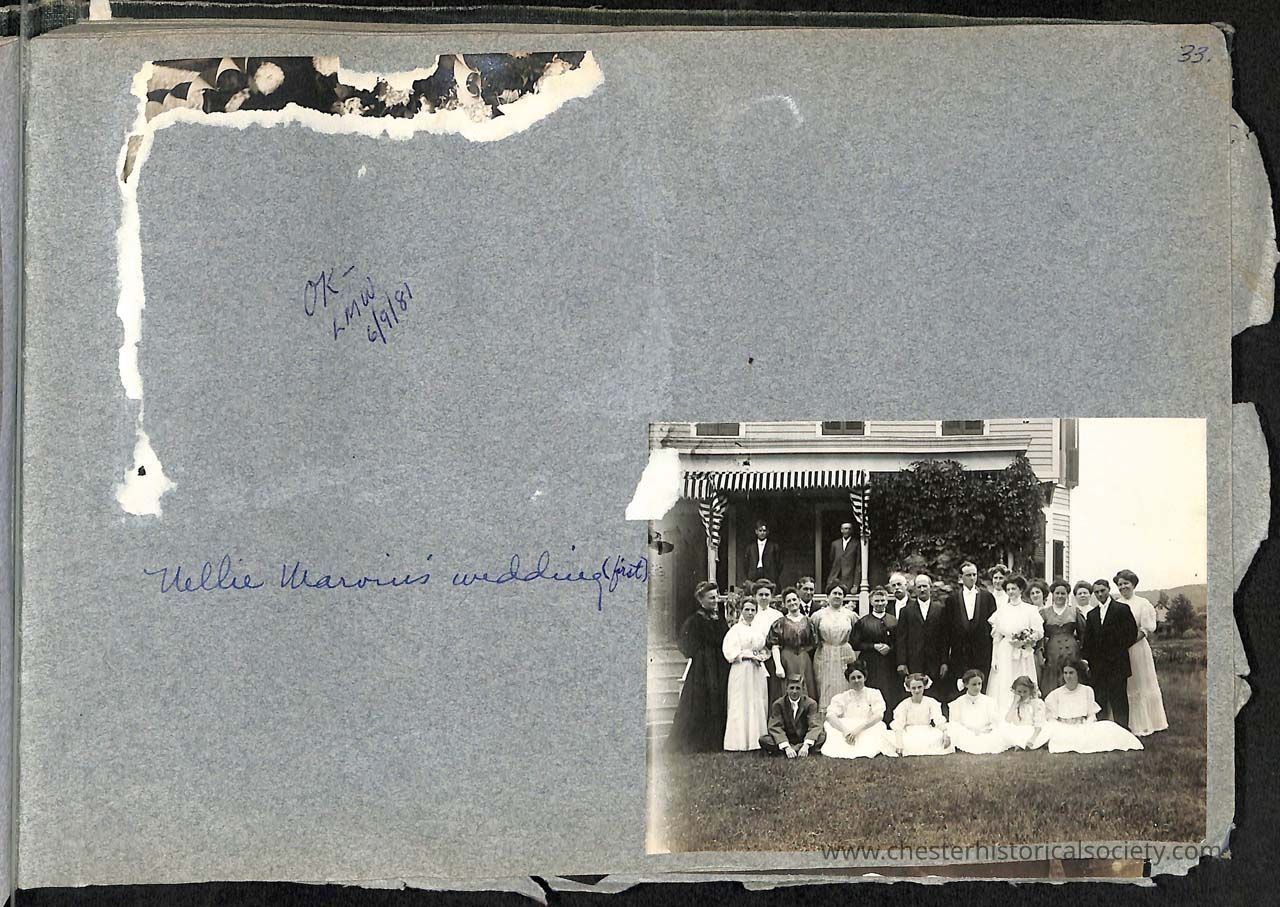 33.
OK-
LMW
6/9/81
Nellie Marvin's wedding (first)
www.chesterhistoricalsociety.com